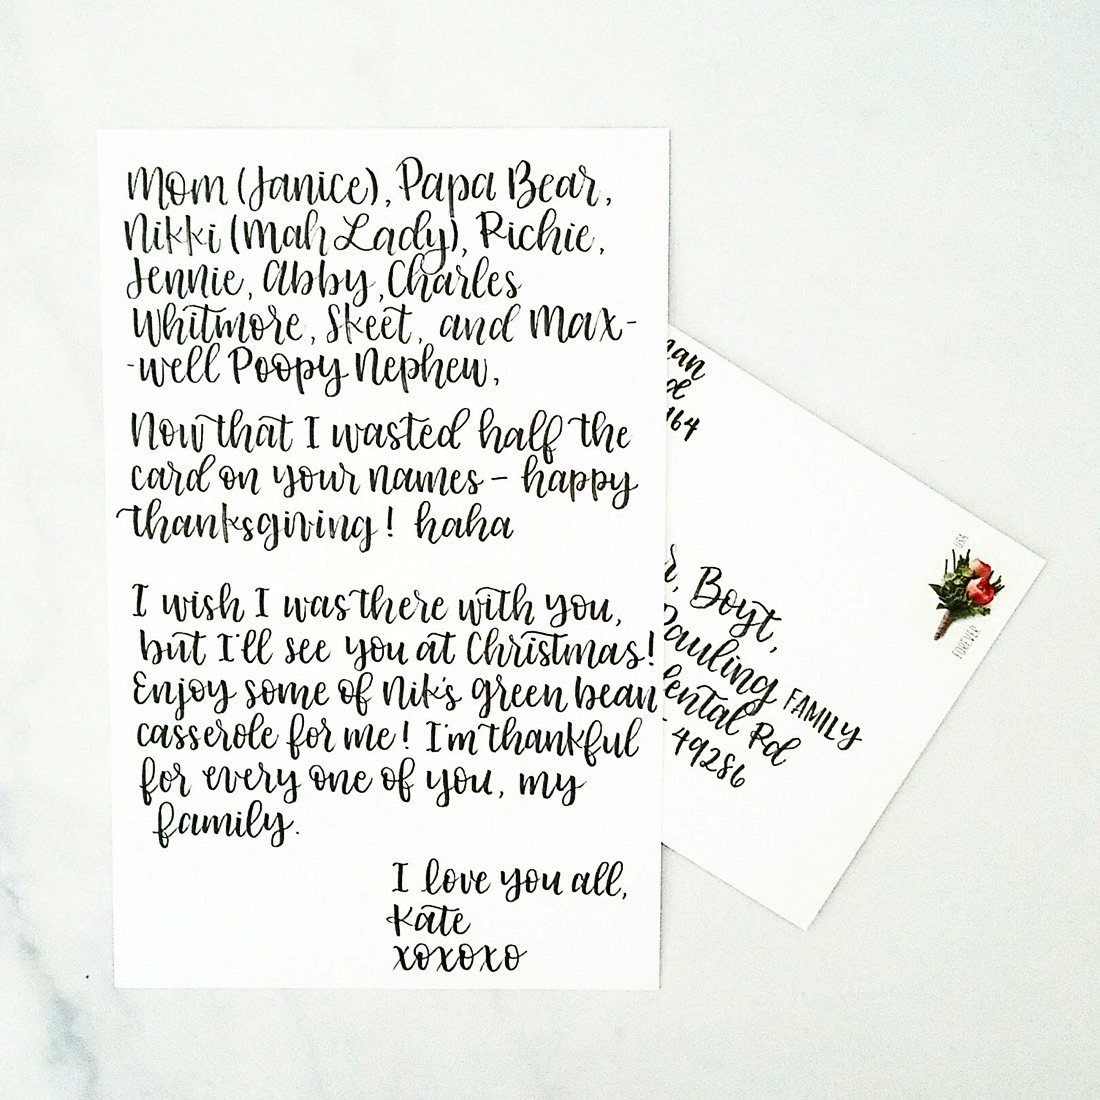 Mom (Janice), Papa Bear,
Nikki (Mah Lady), Richie,
Jennie, Abby, Charles
Whitmore, Skeet, and Max-
-well Poopy Nephew,
Now that I wasted half the
card on your names - happy
thanksgiving! haha
I wish I was there with you,
but I'll see you at Christmas!
Enjoy some of Nik's green bean
casserole for me! I'm thankful
for every one of you, my
family.
I love you all,
Kate
xoxoxo
Boyt,
Pauling FAMILY
Rd
49286
USA
FOREVER